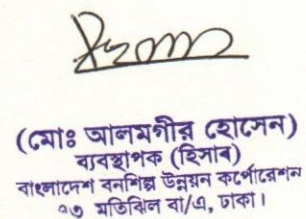 (মোঃ আলমগীর হোসেন)
ব্যবস্থাপক (হিসাব)
বাংলাদেশ বনশিল্প উন্নয়ন কর্পোরেশন
৭৩ মতিঝিল বা/এ, ঢাকা।